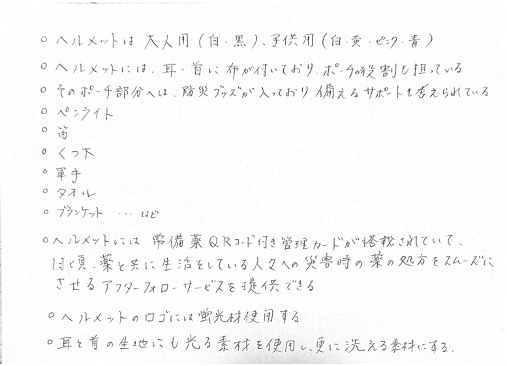 ○ ヘルメットは 大人用(白・黒)、子供用(白・黄・ピンク・青)
○ ヘルメットには、耳・首に布が付いており、ポーチの役割も担っている
○ そのポーチ部分へは、防災グッズが入っており 備えるサポートも考えられている
○ ペンライト
○ 笛
○ くつ下
○ 軍手
○ タオル
○ ブランケット … など
○ ヘルメットには 常備薬QRコード付き管理カードが搭載されていて、
日頃、薬と共に生活をしている人々への災害時の薬の処方をスムーズに
させるアフターフォローサービスを提供できる
○ ヘルメットのロゴには蛍光材使用する
○ 耳と首の生地にも光る素材を使用し、更に洗える素材にする。